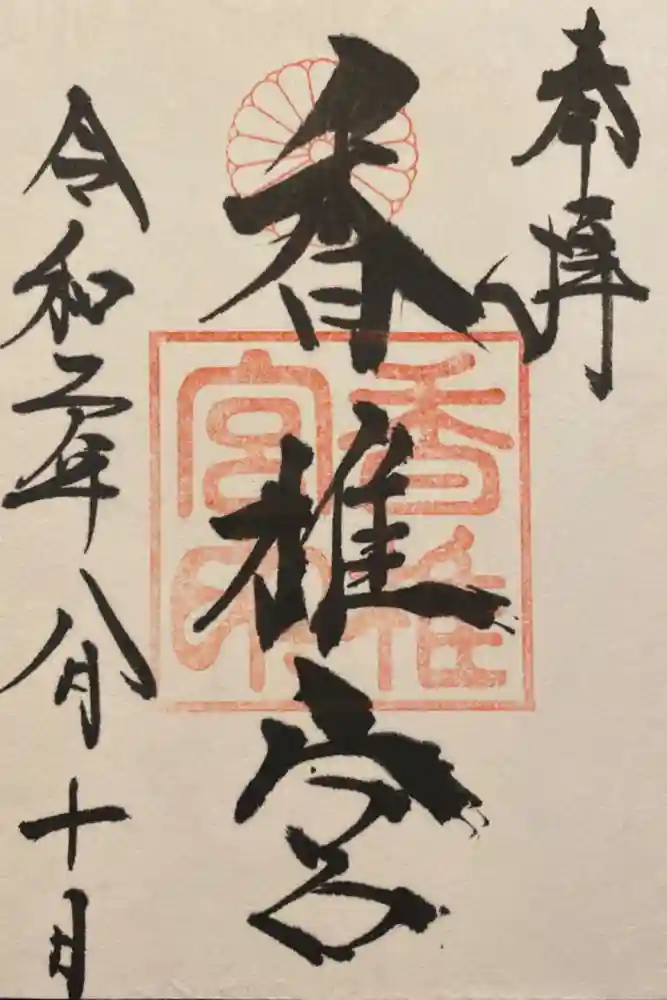 奉拝
香椎宮
香椎
宮印
令和二年八月十日